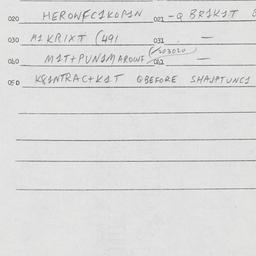 020 HERONFC1KOPIN 021 -Q BR1K1T
030 M1 KRIXT (491 031 —
040 M1T+PUNIMAROWF (203020) 041 —
050 K81NTRAC+K1T QBEFORE SHAJPTUNCI